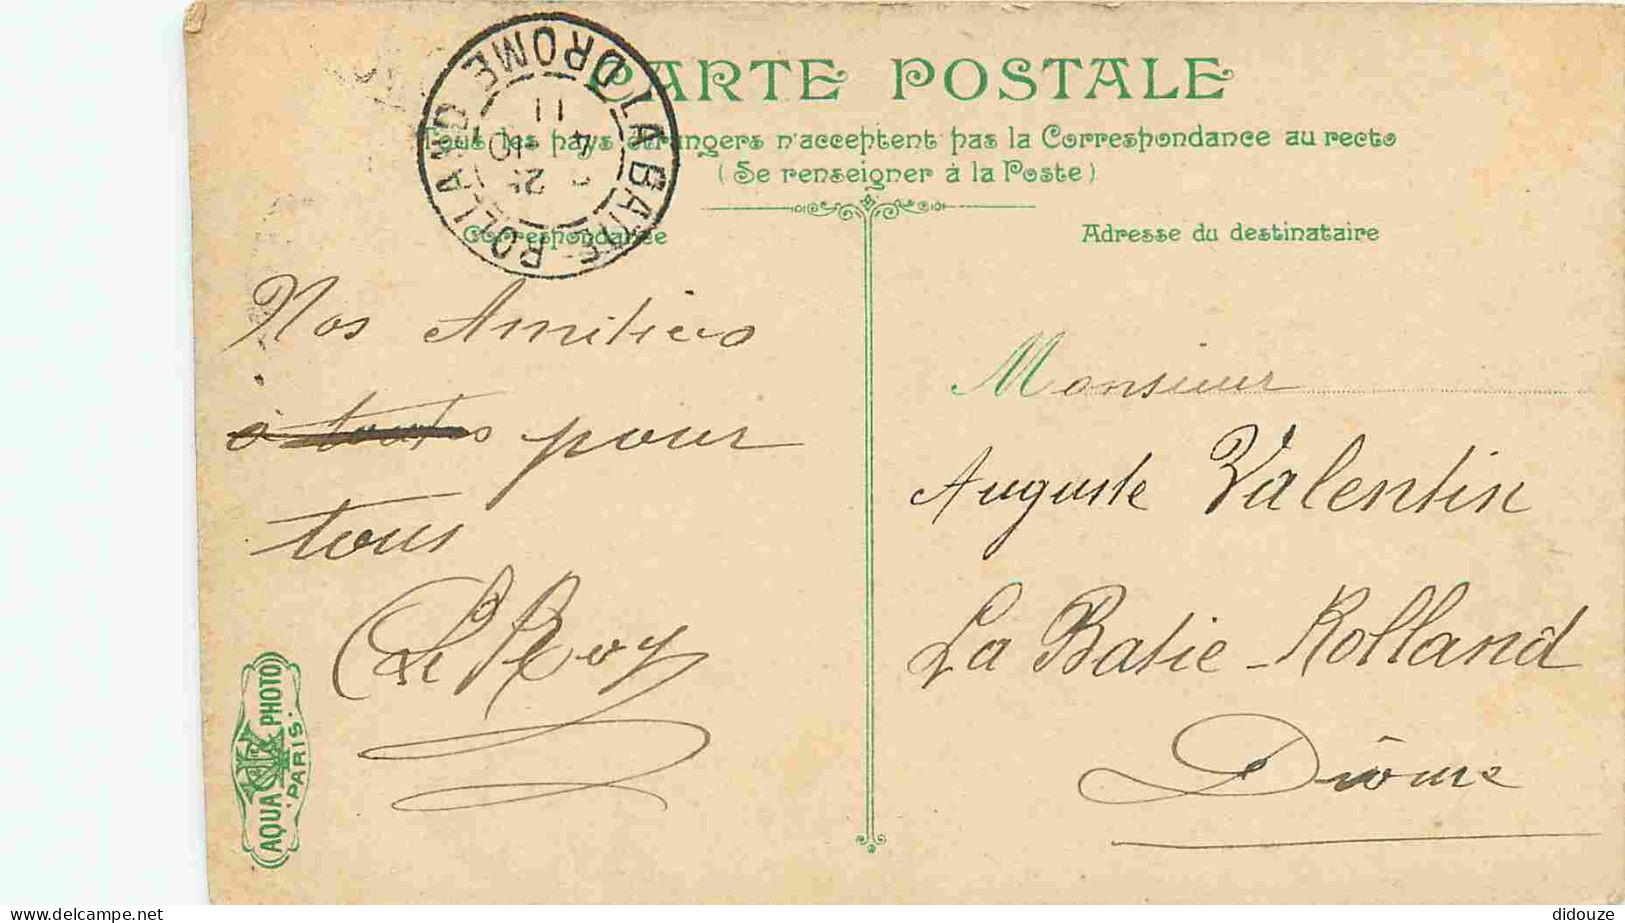 CARTE POSTALE
Tous les pays étrangers n'acceptent pas la Correspondance au recto
(Se renseigner à la Poste)
LA BATIE-ROLLAND
DROME
11
4
25
10
Correspondance
Adresse du destinataire
Nos Amitiés
à toutes pour
tous
Le Roy
Monsieur
Auguste Valentin
La Batie-Rolland
Drôme
AQUA PHOTO
PARIS.
www.delcampe.net
didouze